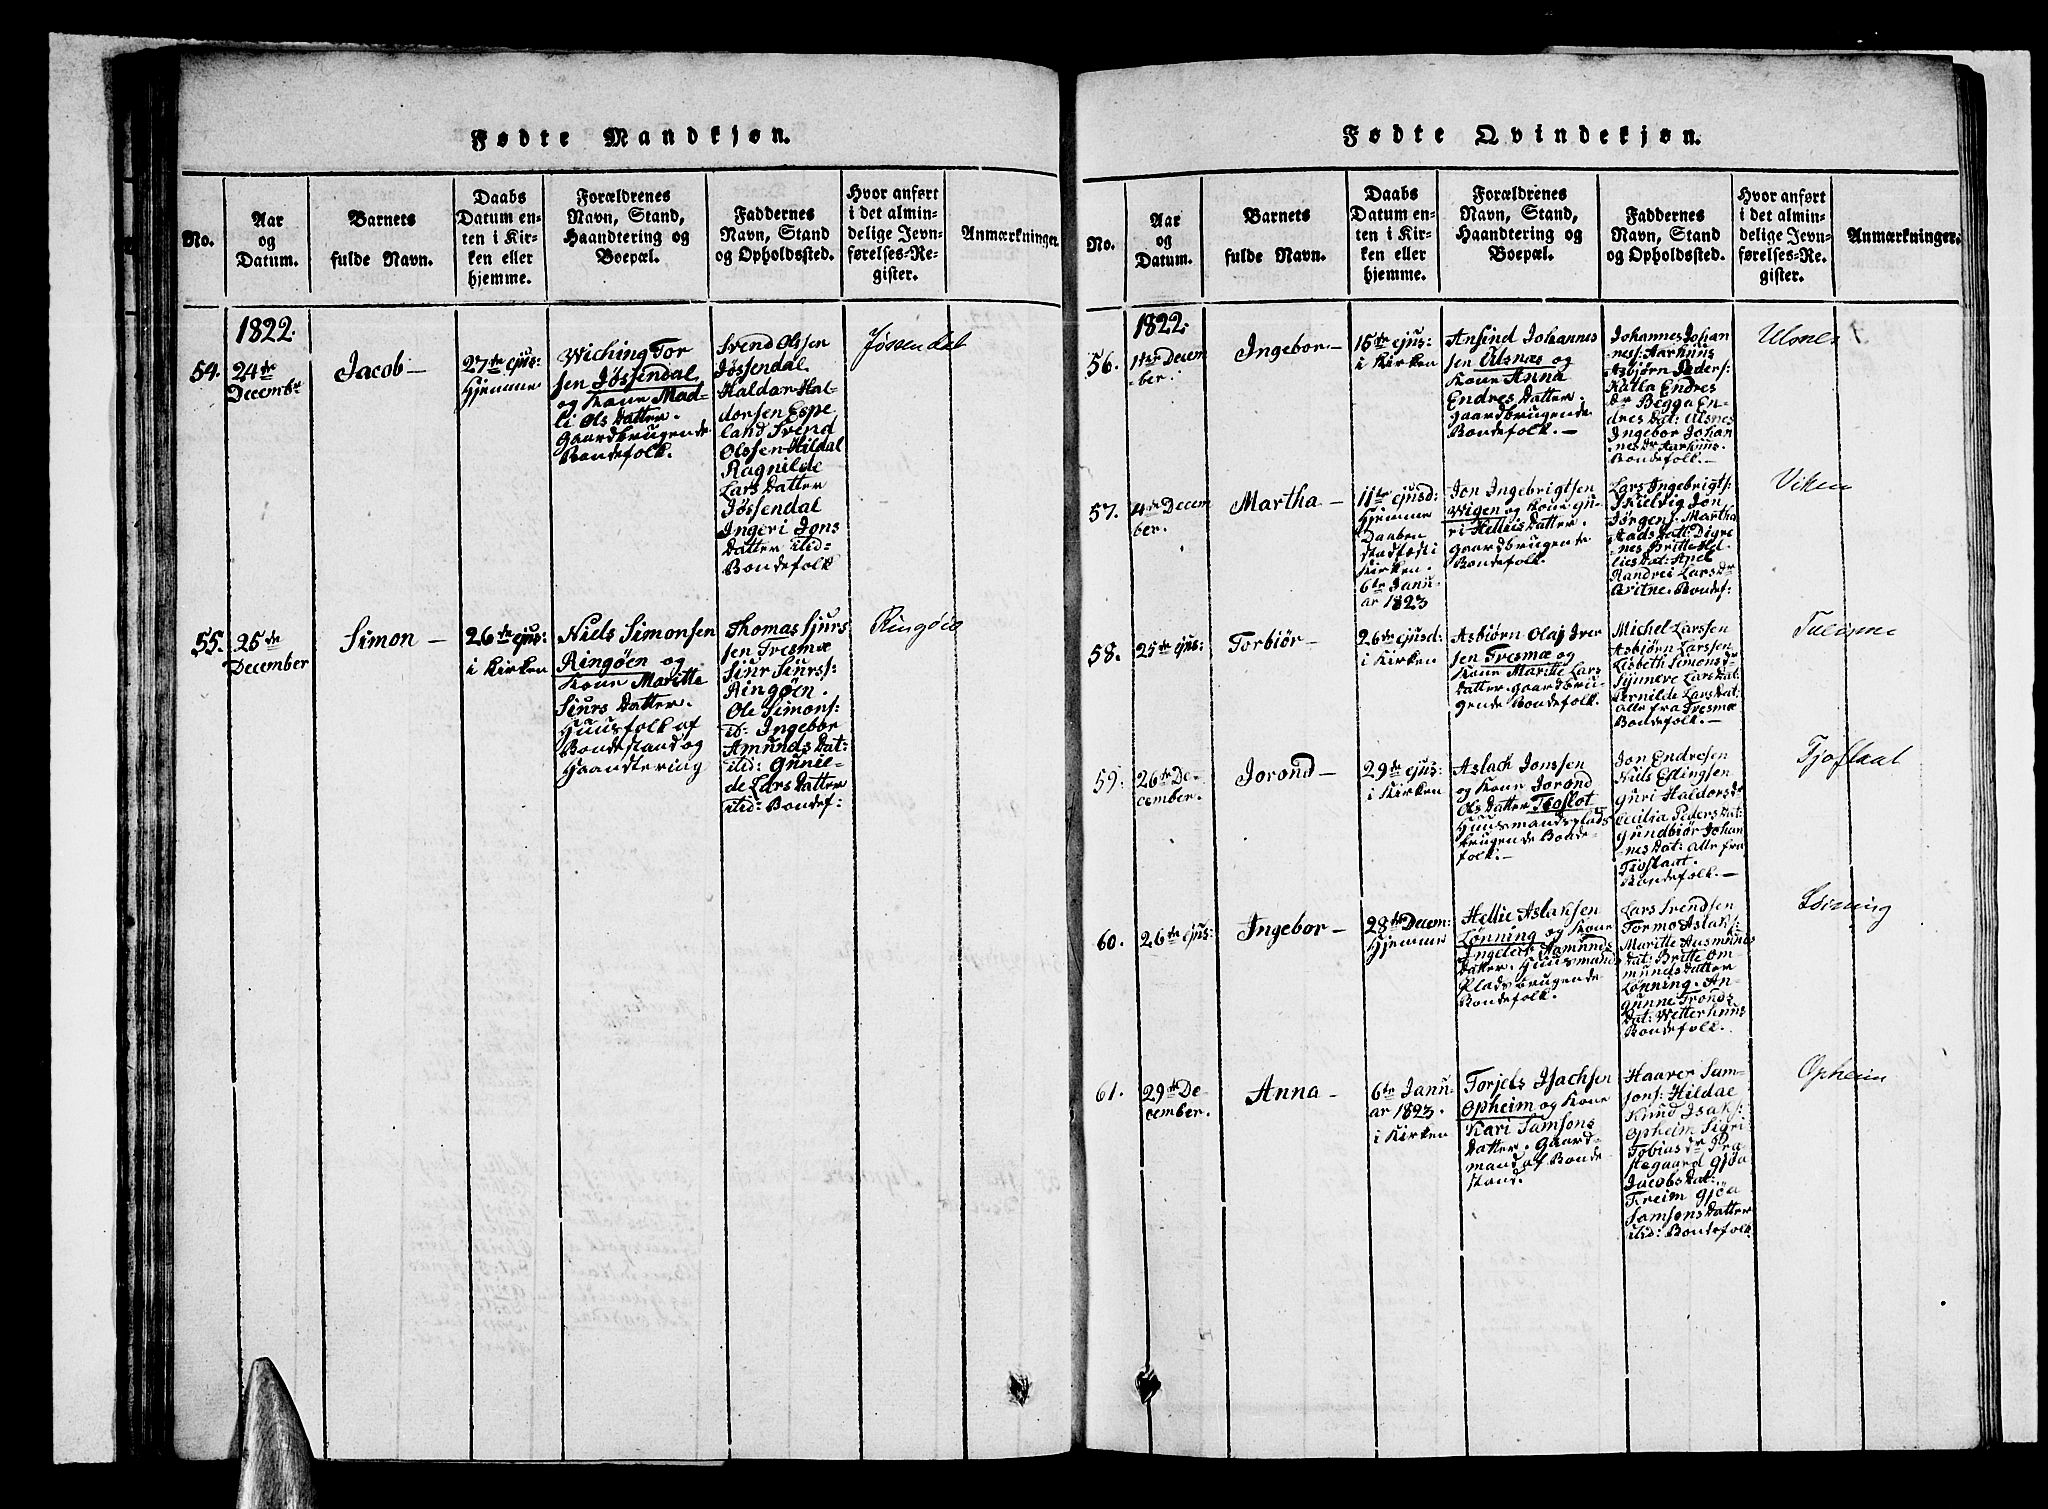 Fødte Mandkjøn.
No.
Aar
og
Datum.
Barnets
fulde Navn.
Daabs
Datum en-
ten i Kir-
ken eller
hjemme.
Forældrenes
Navn, Stand,
Haandtering og
Boepæl.
Faddernes
Navn, Stand
og Opholdssted.
Hvor anført
i det almin-
delige Jevn-
førelses-Re-
gister.
Anmærkninger.
1822.
54.
24de
Decembr
Jacob —
27de ejus:
Hjemme
Wiching Tor
sen Jøssendal
og Kone Mad-
li Ols Datter.
Gaardbrugende
Bondefolk.
Svend Olssen
Jøssendal
Haldor Hal-
dorsen Espe
land Svend
Olssen Hildal
Ragnilde
Lars Datter
Jøssendal
Ingeri Jons
Datter itid=
Bondefolk
Jøssendal
55.
25de
December
Simon —
26de ejus:
i Kirken
Niels Simonsen
Ringøen og
Kone Maritte
Siurs Datter.
Huusfolk af
Bondestand og
Haandtering
Thomas Sjurs
sen Tresmæ
Siur Siurss:
Ringøen.
Ole Simons:
id: Ingebor
Amunds Dat:
itid: Gunil-
de Lars Datter
itid: Bondef:
Ringøen
Fødte Qvindekjøn.
No.
Aar
og
Datum.
Barnets
fulde Navn.
Daabs
Datum en-
ten i Kir-
ken eller
hjemme.
Forældrenes
Navn, Stand,
Haandtering og
Boepæl.
Faddernes
Navn, Stand
og Opholdssted.
Hvor anført
i det almin-
delige Jevn-
førelses-Re-
gister.
Anmærkninger.
1822.
56.
1ste Decem
-ber.
Ingebor —
15de ejus:
i Kirken
Ansind Johannes
sen Ulsnæs og
Kone Anna
Endres Datter.
Gaardbrugende
Bondefolk. —
Johannes Johan
nes: Aarhuus
Asbjørn Peders:
Katla Endres
Dr Begga En-
dres Dat: Ulsnes
Ingebor Johan
nes Dr Aarhuus.
Bondefolk. —
Ulsnes
57.
4de Decem
ber.
Martha —
11te ejusd:
Hjemme
Daaben
stadfæst i
Kirken.
6te Janu-
ar 1823
Jon Ingebrigtsen
Wigen og Kone Gu-
ri Hellies Datter.
Gaardbrugende
Bondefolk.
Lars Ingebrigts:
Skielvig Jon
Jørgens. Martha
Mads Datt: Digre
nes Britte Hel
lies Dat: Apel
Randrei Lars Dr
Qvitne. Bondef:
Viken
58.
25de ejus:
Torbiør —
26de ejusd:
i Kirken
Asbiørn Olaj Iver
sen Tresmæ og
Kone Maritte Lars
Datter. Gaardbru-
gende Bondefolk.
Michel Larssen
Asbiørn Larssen
Lisbeth Simons Dr
Synneve Lars Dat
Pernilde Lars Dat:
alle fra Tresmæ
Bondefolk. —
59.
26de De-
cember.
Jorond —
29de ejus:
i Kirken
Aslach Jonssen
og Kone Jorond
Ols Datter Tioflot
Huusmandsplads
brugende Bonde-
folk: —
Jon Endresen
Niels Erlingsen
Guri Haldors Dr
Cecilia Peders Dat:
Gundbiør Johan
nes Dat: alle fra
Tioflaat.
Bondefolk. —
Tjoflaat
60.
26de ejus:
Ingebor —
28de Decem:
Hjemme
Hellie Aslaksen
Lønning og Kone
Ingeleif Aamunds
Datter. Huusmands
Plads brugende
Bondefolk.
Lars Svendsen
Tormo Aslaks:
Maritte Aasmunds
Dat: Britte Om-
munds Datter
Lønning. An-
gunne Tronds
Dat: Wetterhuus
Bondefolk.
Lønning
61.
29de De-
cember.
Anna —
6te Janu-
ar 1823.
i Kirken
Torjels Isachsen
Opheim og Kone
Kari Samsons
Datter. Gaard-
mand af Bonde
stand.
Haaver Sam-
sons: Hildae
Knud Isaks:
Opheim Sigri
Tobias Dr Præ
stegaard Gjøa
Jacobs Dat:
Freim Gjøa
Samsons Datter
itid: Bondefolk
Opheim